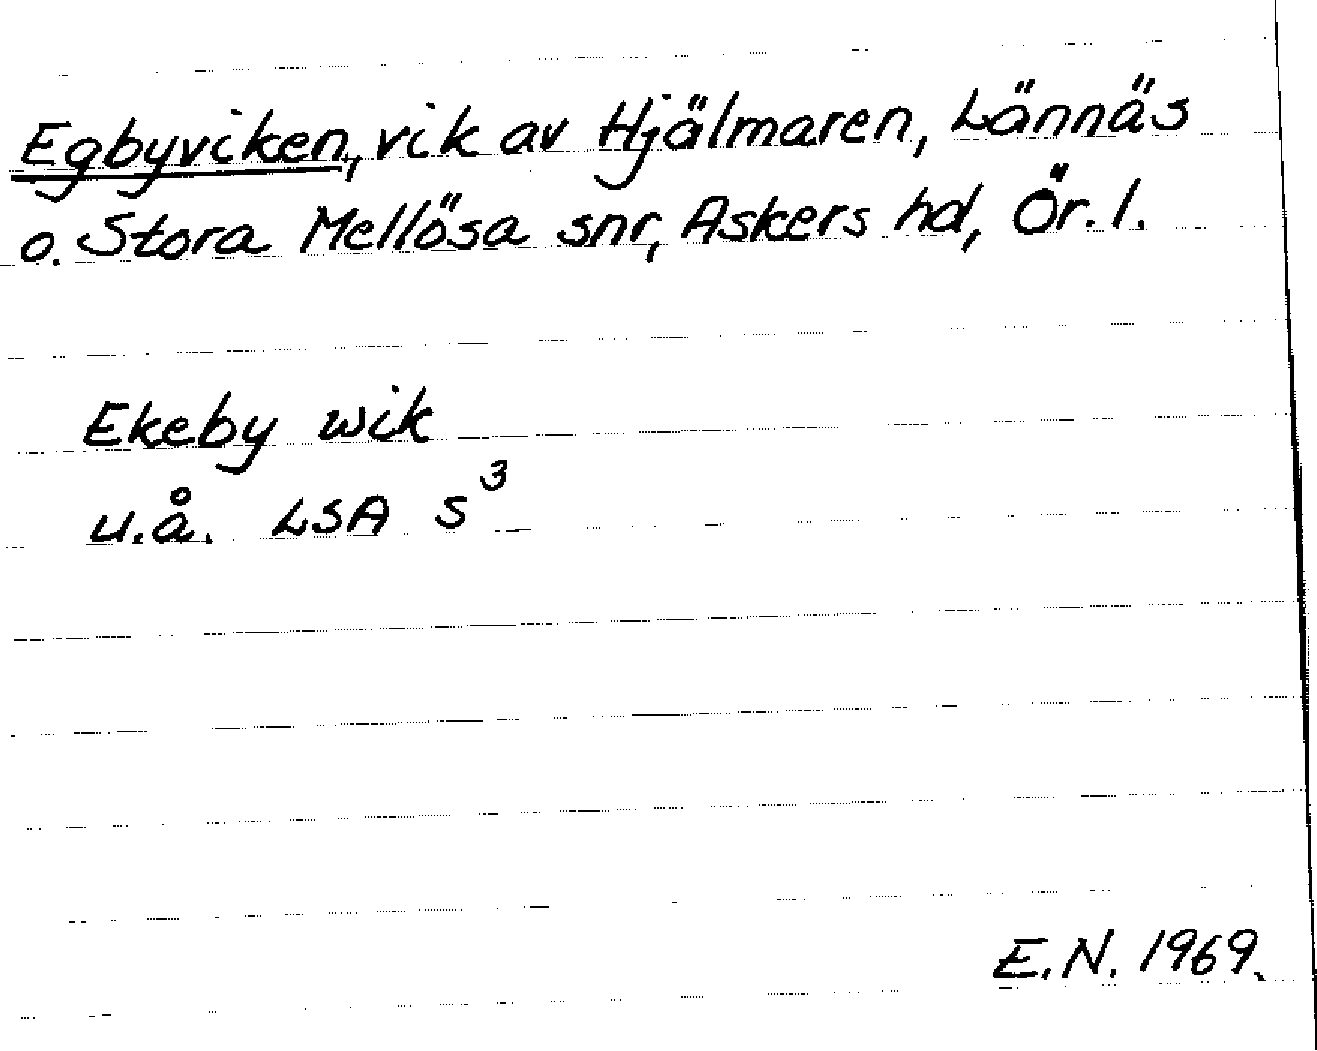 Egbyviken, vik av Hjälmaren, Lännäs
o. Stora Mellösa snr, Askers hd, Ör. l.
Ekeby wik
u.å. LSA S³
E.N. 1969.